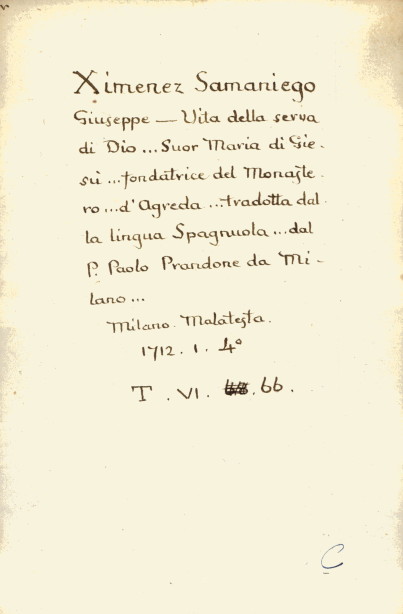 Ximenez Samaniego
Giuseppe — Vita della serva
di Dio ... Suor Maria di Gie-
sù ... fondatrice del Monaste-
ro ... d'Agreda ... tradotta dal-
la lingua Spagnuola ... dal
P. Paolo Prandone da Mi-
lano ...
Milano. Malatesta.
1712. 1. 4°
T. VI. 66.
C